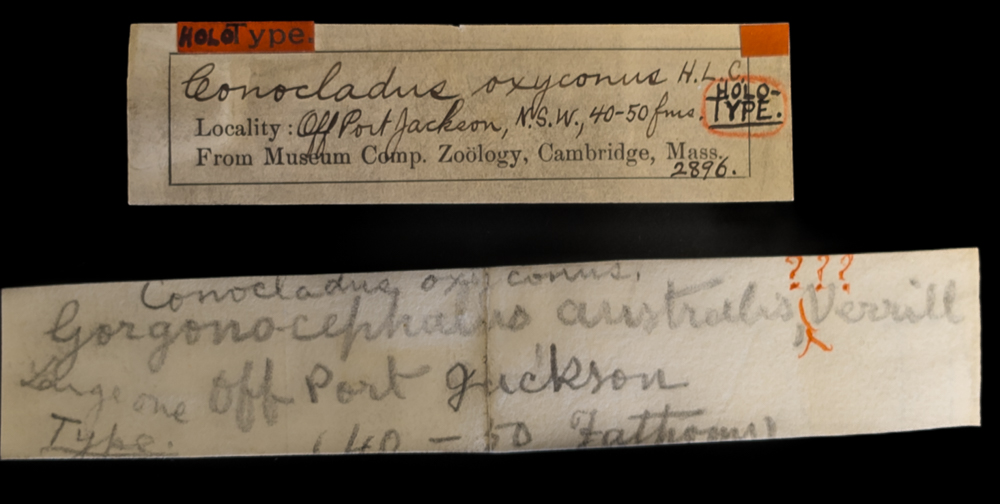 HOLOType.
Conocladus oxyconus H.L.C.
HOLO-
TYPE.
Locality: Off Port Jackson, N.S.W., 40-50 fms.
From Museum Comp. Zoölogy, Cambridge, Mass.
2896.
Conocladus oxyconus.
? ? ?
Gorgonocephalus australis, Verrill
Large one Off Port Jackson
Type. (40 - 50 Fathoms)